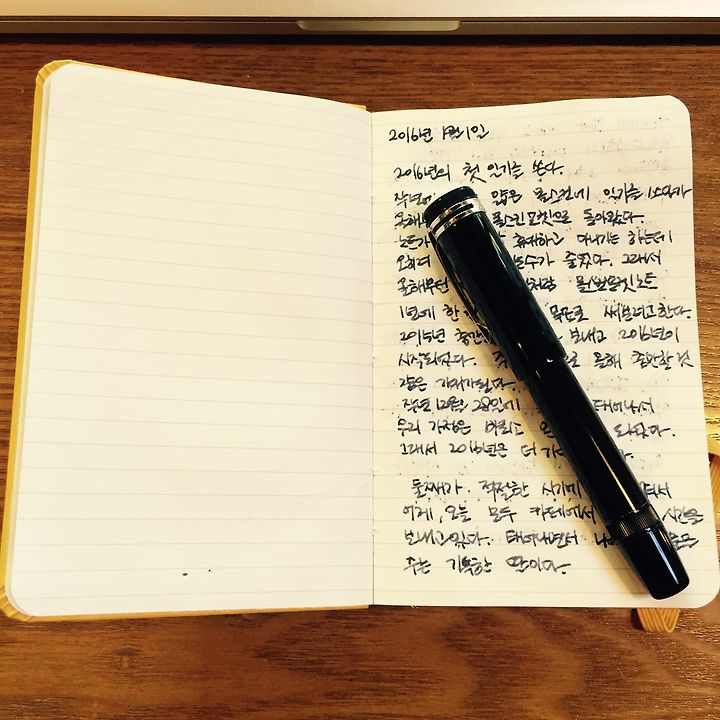 2016년 1월 1일
2016년의 첫 일기를 쓴다.
작년에 얇은 몰스킨에 일기를 쓰다가
올해 몰스킨 포켓으로 돌아왔다.
노트가 휴대하고 다니기는 하는데
오히려 는수가 줄었다. 그래서
올해부터 처럼 몰스킨포켓노트
1년에 한 목표로 써보려고 한다.
2015년 충만 보내고 2016년이
시작되었다. 으로 올해 충만할 것
같은 기대가 된다.
작년 12월 28일에 태어나서
우리 가정은 비로소 되었다.
그래서 2016년은 더
둘째가 적절한 시기에
어제, 오늘 모두 카페에서 시간을
보내고 있다. 태어나면서
주는 기특한 딸이다.